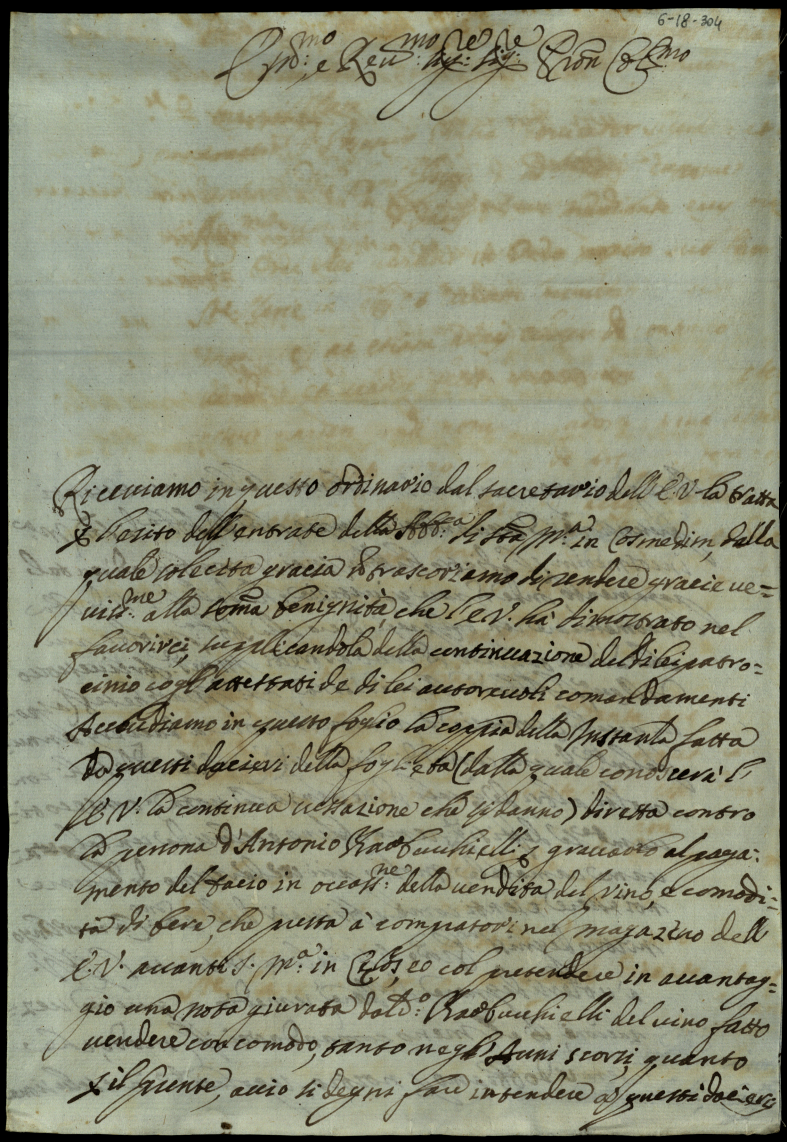 6-18-304
Em̃mo: e Reu:mo Sig:re Sig:re Pron Col:mo
Riceuiamo in questo ordinario dal sacretario dell E.V. la tratta
p l'esito dell'entrate della Abb:a di Sta M:a in Cosmedim, dalla
quale gracia trascoriamo di rendere gracie ue=
:me alla som̃a benignità, che l'E.V. ha dimostrato nel
fauorirci, supplicandola della continuazione del di lei patro=
cinio cogl'attestati de di lei autoreuoli comandamenti
Accludiamo in questo foglio la coppia della Instanza fatta
da questi dacieri della fogl:etta (dalla quale conoscerà l'
E.V. la continua uessazione che ci danno) diretta contro
la persona d'Antonio p grauarlo al paga:
mento del dacio in occas:ne della uendita del uino, e comodi=
tà di bere, che presta à compratori nel magazeno dell
E.V. auanti S. M:a in Cos, eo col pretendere in auantag=
gio una nota giurata dal d:o del uino fatto
uendere con comodo, tanto negl'Anni scorsi, quanto
p il pnte, acciò si degni fare intendere à questi dacieri